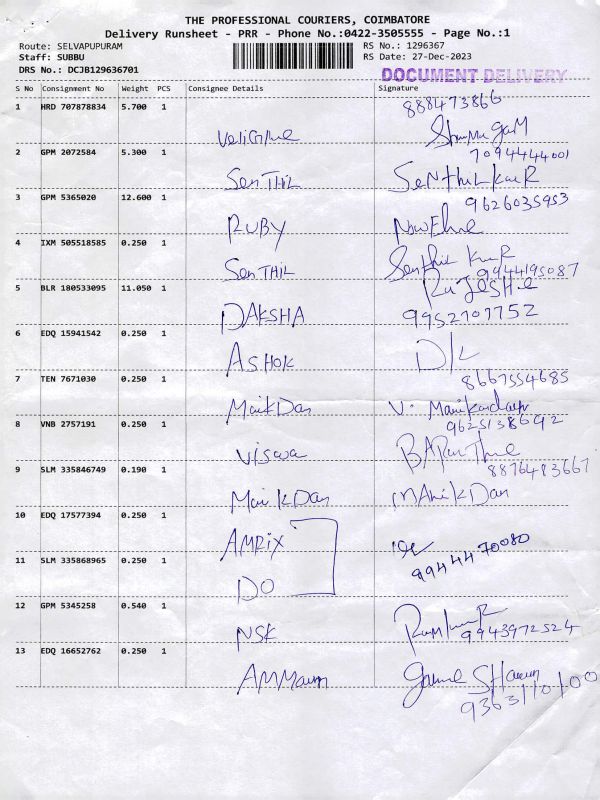 THE PROFESSIONAL COURIERS, COIMBATORE
Delivery Runsheet - PRR - Phone No.:0422-3505555 - Page No.:1
Route: SELVAPUPURAM
RS No.: 1296367
Staff: SUBBU
RS Date: 27-Dec-2023
DRS No.: DCJB129636701
DOCUMENT DELIVERY
S No Consignment No Weight PCS Consignee Details Signature
1 HRD 707878834 5.700 1
888473866
2 GPM 2072584 5.300 1
7094444001
SenTHIL SeNthilkumR
3 GPM 5365020 12.600 1
9626035953
RUBY
4 IXM 505518585 0.250 1
SenTHIL Senthil KumR
9944195087
5 BLR 180533095 11.050 1
DAKSHA 9952707752
6 EDQ 15941542 0.250 1
ASHOK D/L
7 TEN 7671030 0.250 1
8667554685
ManikDan V. Manikandan
8 VNB 2757191 0.250 1
9625138692
Viswa
9 SLM 335846749 0.190 1
8876483667
ManikDan mANikDan
10 EDQ 17577394 0.250 1
AMRIX
9944470080
11 SLM 335868965 0.250 1
DO
12 GPM 5345258 0.540 1
NSK RamkumR 9943972524
13 EDQ 16652762 0.250 1
9363110100